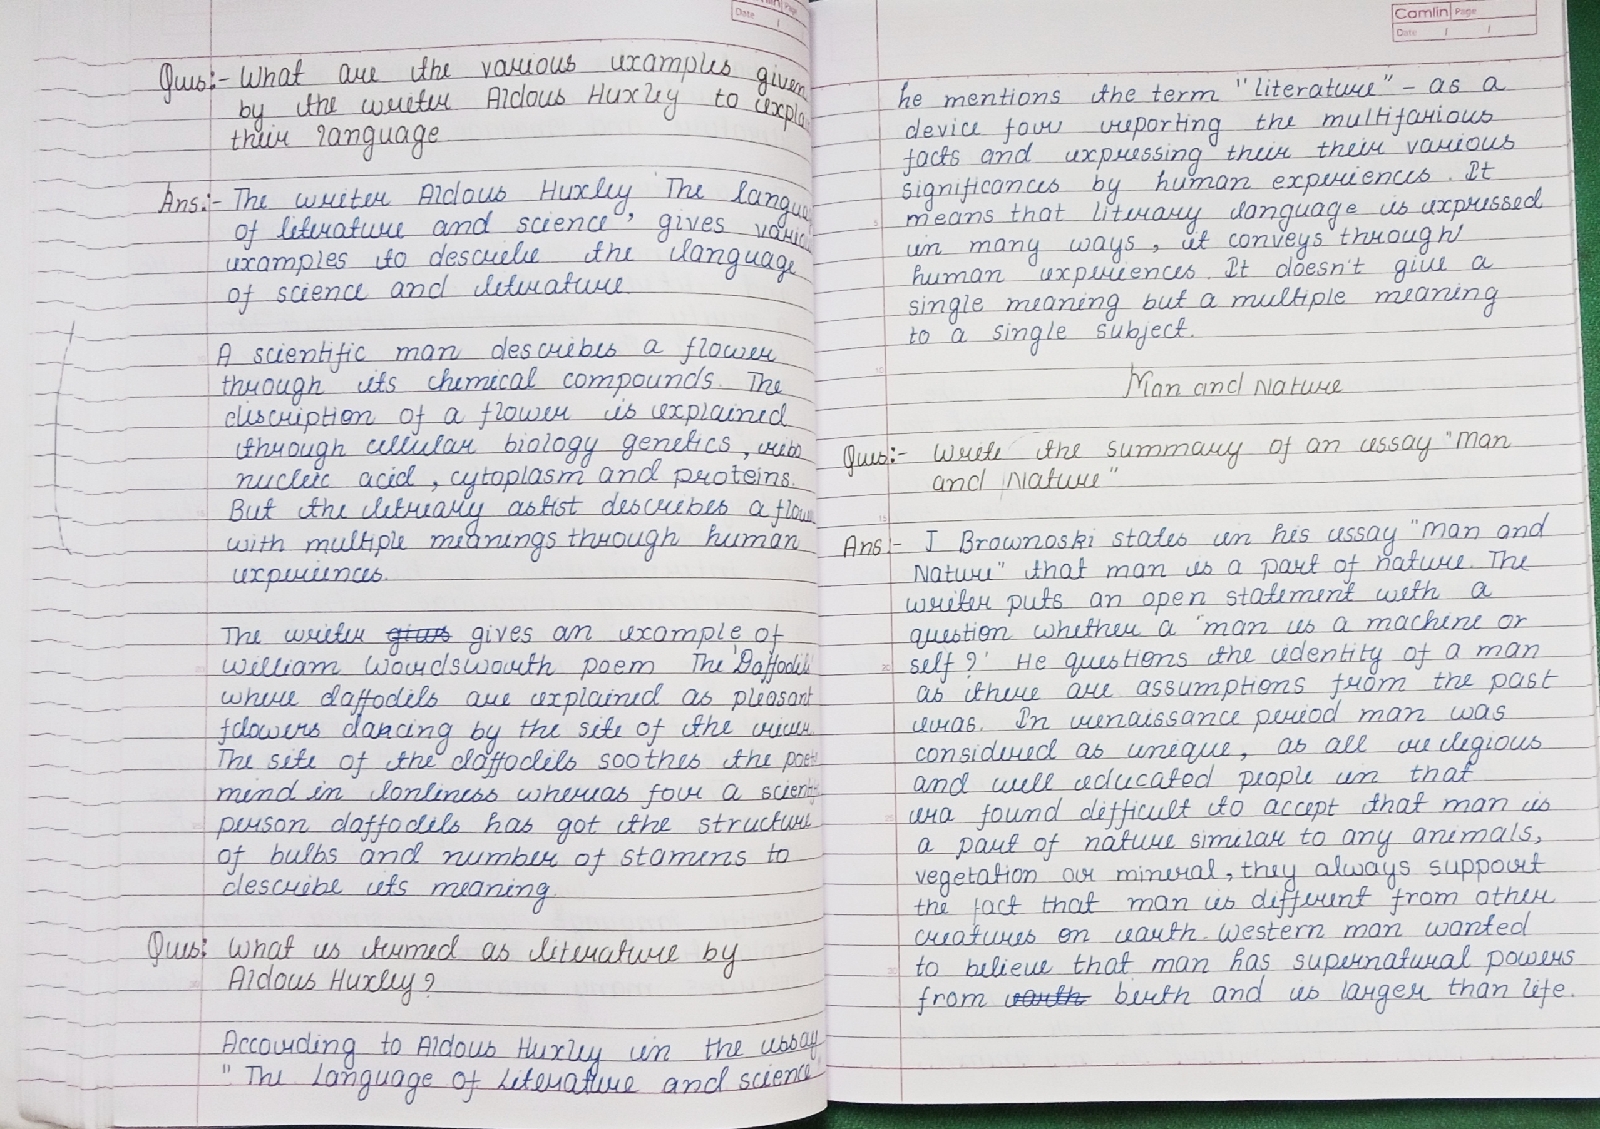 Date
Ques:- What are the various examples given
by the writer Aldous Huxley to expla
their language
Ans:- The writer Aldous Huxley 'The langua
of literature and science', gives vario
examples to describe the language
of science and literature.
A scientific man describes a flower
through its chemical compounds. The
discription of a flower is explained
through cellular biology genetics,
nucleic acid, cytoplasm and proteins.
But the literary astist describes a flow
with multiple meanings through human
experiences.
The writer gives an example of
William Wordsworth poem The 'Daffodil
where daffodils are explained as pleasant
flowers dancing by the site of the
The site of the daffodils soothes the poet
mind in lonliness whereas for a scienti
person daffodils has got the structure
of bulbs and number of stamens to
describe its meaning.
Ques: What is termed as literature by
Aldous Huxley?
According to Aldous Huxley in the essay
"The Language of Literature and science"
Camlin Page
Date / /
he mentions the term "literature" - as a
device for reporting the multifarious
facts and expressing their their various
significances by human experiences. It
means that literary language is expressed
in many ways, it conveys through
human experiences. It doesn't give a
single meaning but a multiple meaning
to a single subject.
Man and Nature
Ques:- Write the summary of an essay "Man
and Nature"
Ans:- J Brownoski states in his essay "Man and
Nature" that man is a part of nature. The
writer puts an open statement with a
question whether a 'man is a machine or
self?' He questions the identity of a man
as there are assumptions from the past
eras. In renaissance period man was
considered as unique, as all religious
and well educated people in that
era found difficult to accept that man is
a part of nature similar to any animals,
vegetation or mineral, they always support
the fact that man is different from other
creatures on earth. Western man wanted
to believe that man has supernatural powers
from birth and is larger than life.